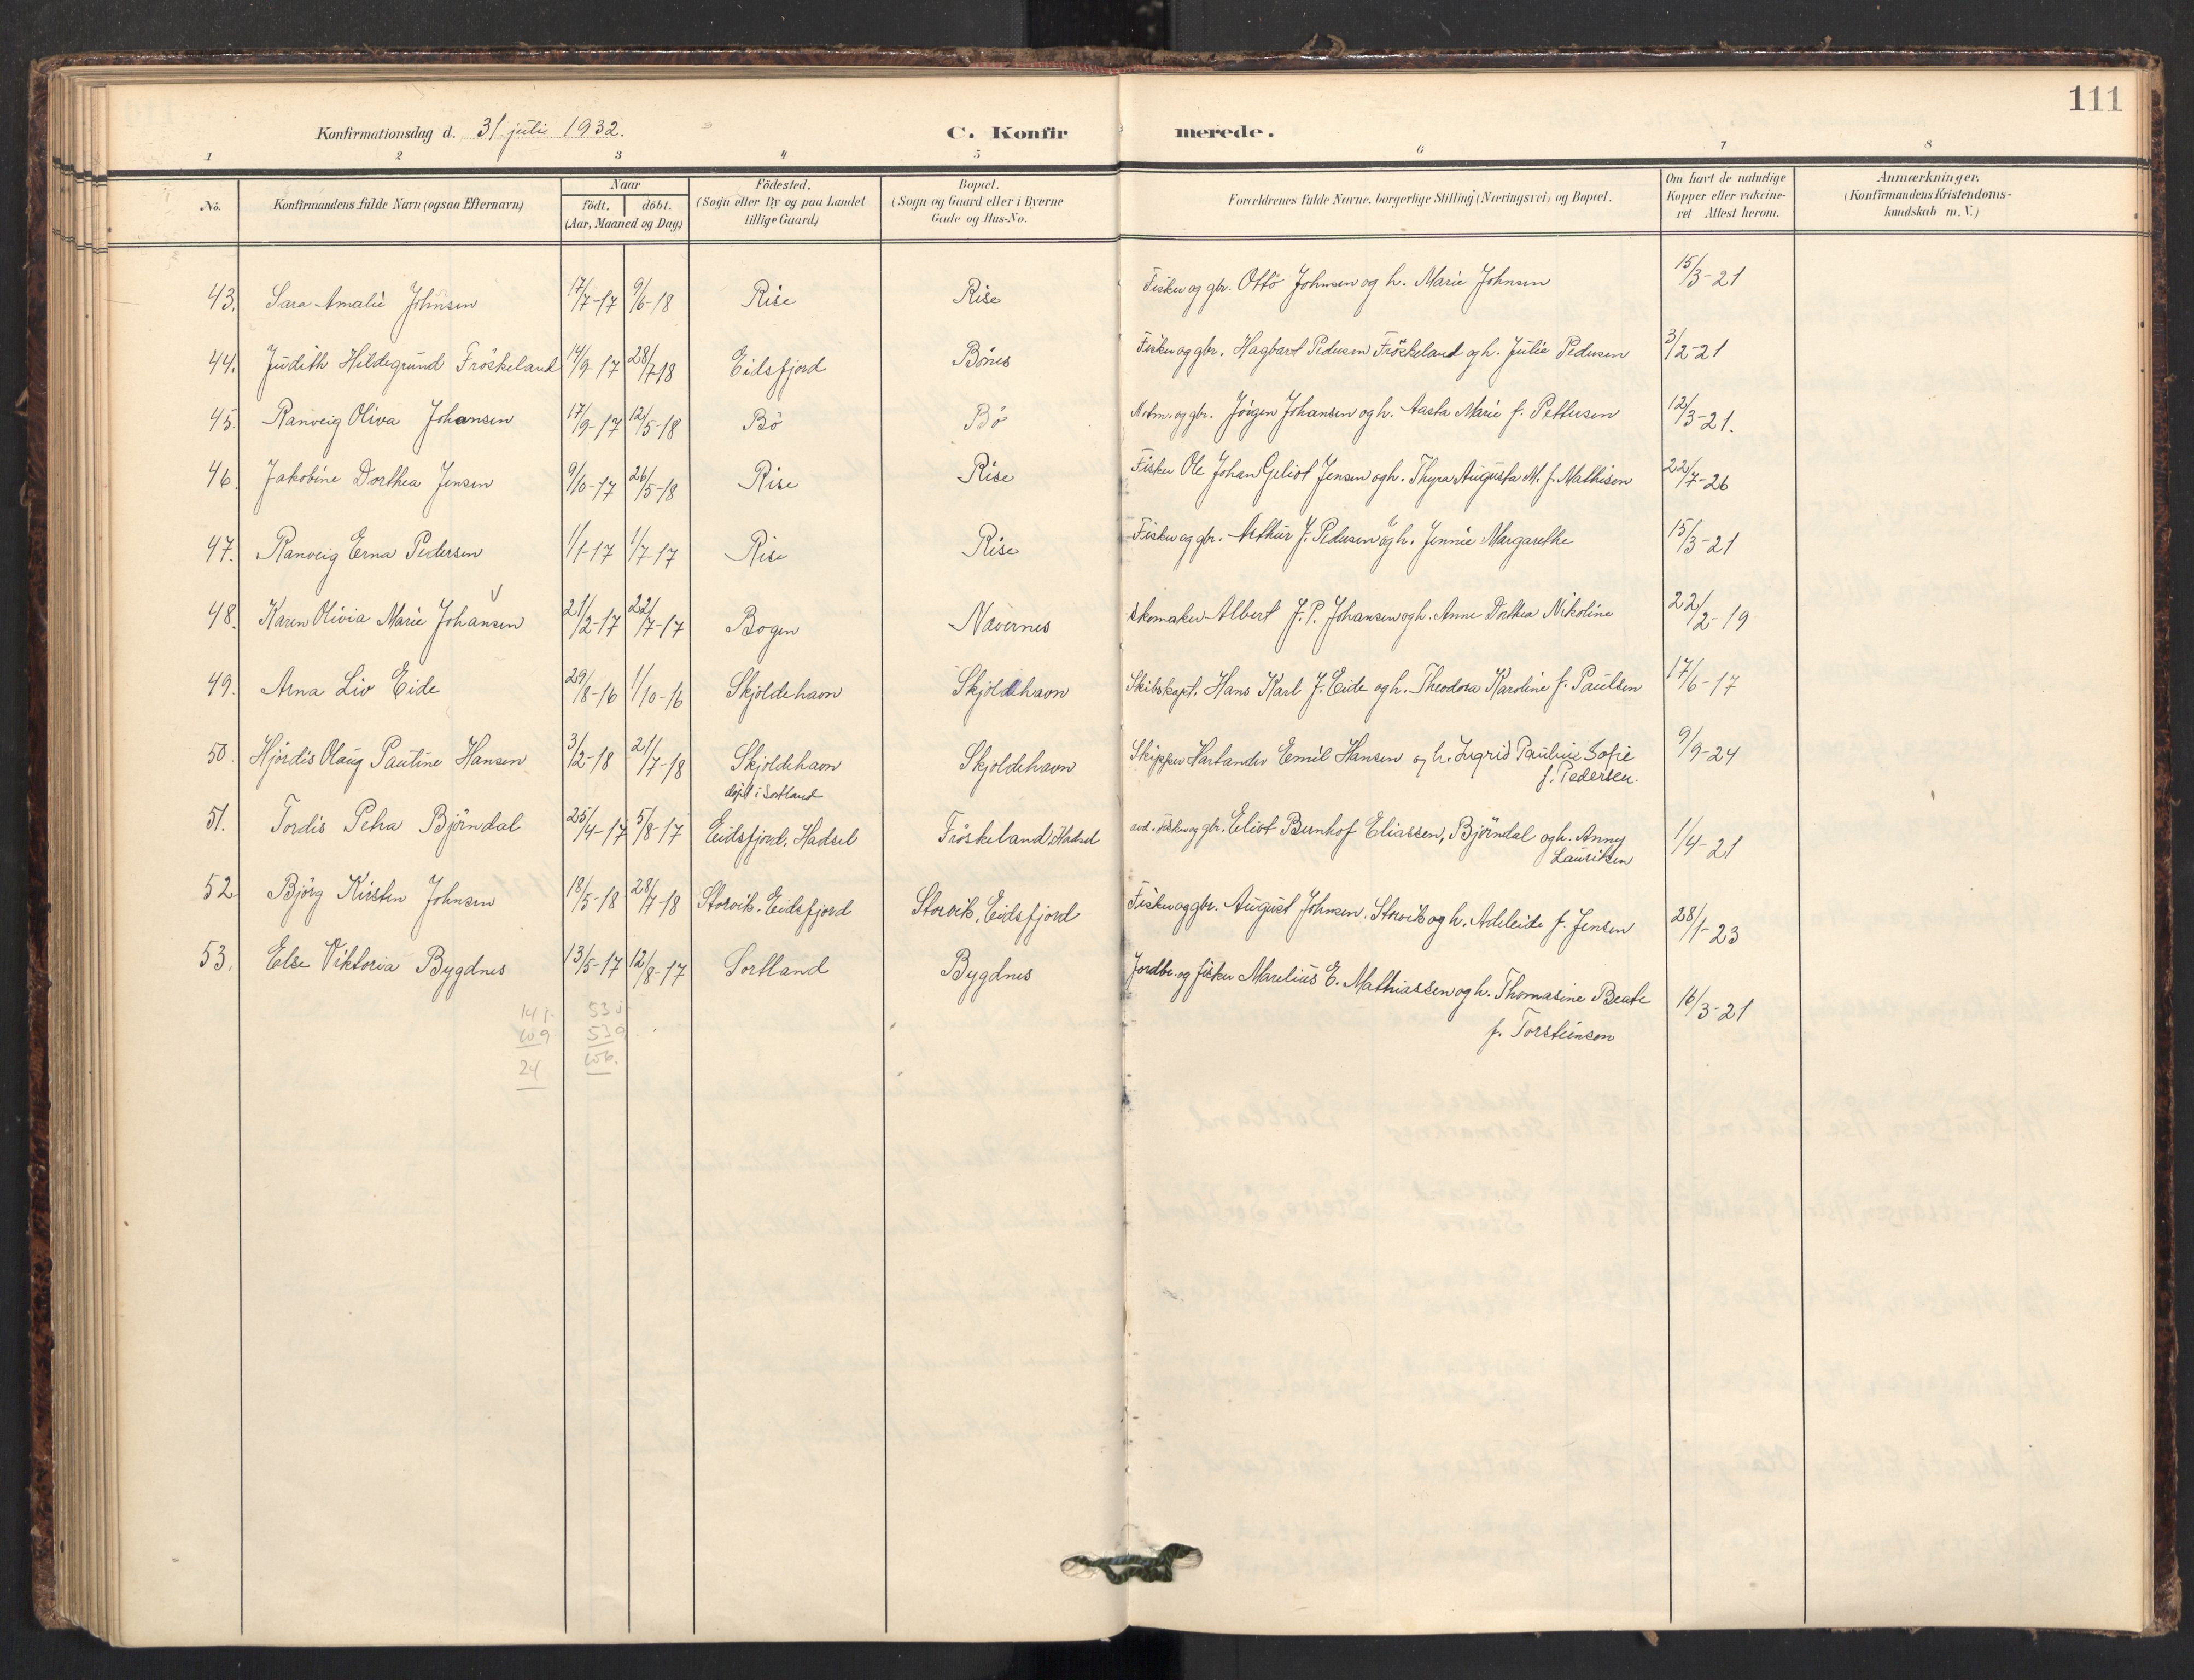 111
Konfirmationsdag d. 31. juli 1932. C. Konfirmerede.
1 2 3 4 5 6 7 8
No. Konfirmandens fulde Navn (ogsaa Efternavn) Naar födt. döbt. (Aar, Maaned og Dag) Födested. (Sogn eller By og paa Landet tillige Gaard) Bopæl. (Sogn og Gaard eller i Byerne Gade og Hus-No. Forældrenes fulde Navne, borgerlige Stilling (Næringsvei) og Bopæl. Om havt de naturlige Kopper eller vakcineret Attest herom. Anmærkninger. (Konfirmandens Kristendomskundskab m. V.)
43. Sara Amalie Johnsen 17/7-17 9/6-18 Rise Rise Fisker og gbr. Otto Johnsen og h. Marie Johnsen 15/3-21
44. Judith Hildegrund Fröskeland 14/9-17 28/7-18 Eidsfjord Bönes Fisker og gbr. Hagbart Pedersen Fröskeland og h. Julie Pedersen 3/2-21
45. Ranveig Oliva Johansen 17/9-17 12/5-18 Bö Bö Notm. og gbr. Jörgen Johansen og h. Aasta Marie f. Pettersen 12/3-21.
46. Jakobine Dorthea Jensen 9/10-17 26/5-18 Rise Rise Fisker Ole Johan Geliot Jensen og h. Thyra Augusta M. f. Mathisen 22/7-26
47. Ranveig Erna Pedersen 1/1-17 1/7-17 Rise Rise Fisker og gbr. Arthur J. Pedersen og h. Jennie Margarethe 15/3-21
48. Karen Olivia Marie Johansen 21/2-17 22/7-17 Bogen Navernes skomaker Albert J. P. Johansen og h. Anne Dorthea Nikoline 22/2-19
49. Arna Liv Eide 29/8-16 1/10-16 Skjoldehavn Skjoldehavn Skibskapt. Hans Karl J. Eide og h. Theodora Karoline f. Paulsen 17/6-17
50. Hjördis Olaug Pauline Hansen 3/2-18 21/7-18 Skjoldehavn Skjoldehavn Skipper Harlander Emil Hansen og h. Ingrid Pauline Sofie 9/9-24
f. Pedersen.
döpt i Sortland
51. Tordis Petra Björndal 25/4-17 5/8-17 Eidsfjord, Hadsel Fröskeland, Hadsel avd. fisker og gbr. Eliot Bernhof Eliassen, Björndal og h. Anny 1/4-21
Lauritsen
52. Björg Kirsten Johnsen 18/5-18 28/7-18 Storvik, Eidsfjord Storvik, Eidsfjord Fisker og gbr. August Johnsen, Storvik og h. Adeleide f. Jensen 28/1-23
53. Else Viktoria Bygdnes 13/5-17 12/8-17 Sortland Bygdnes Jordbr. og fisker Marelius E. Mathiassen og h. Thomasine Beate 16/3-21
f. Torsteinsen
53
53
106.
24